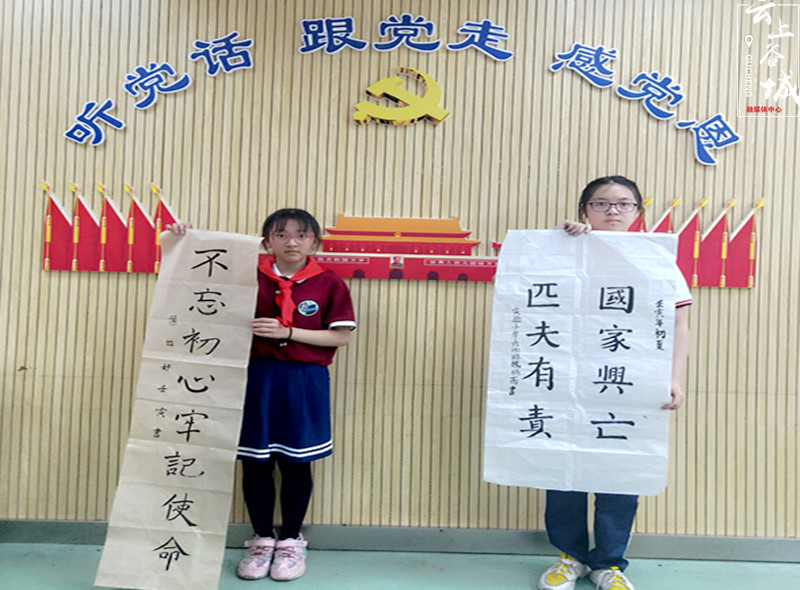 听党话 跟党走 感党恩
云上谷城
GUCHENG
融媒体中心
不忘初心牢記使命
壬寅書
壬寅年初夏
國家興亡
匹夫有責